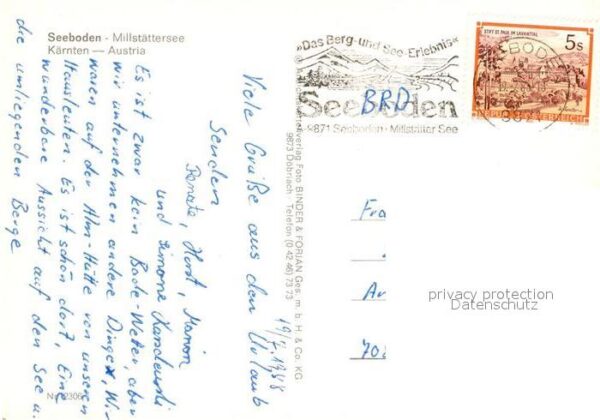 Seeboden - Millstättersee
Kärnten — Austria
»Das Berg-und See-Erlebnis«
Seeboden
9871 Seeboden · Millstätter See
BRD
STIFT ST. PAUL IM LAVANTTAL
5s
REPUBLIK ÖSTERREICH
Viele Grüße aus dem Urlaub
19/7.1988
senden
Renate, Horst, Marion
und Simone
Es ist zwar kein Bade-Wetter, aber
wir unternehmen andere Dinge. Wir
waren auf der Alm-Hütte von unseren
Hausleuten. Es ist schön dort. Eine
wunderbare Aussicht auf den See u.
die umliegenden Berge
Foto BINDER & FORIAN Ges. m. b. H. & Co. KG
9873 Döbriach Telefon (0 42 46) 73 73
Fra
Ar
70
privacy protection
Datenschutz